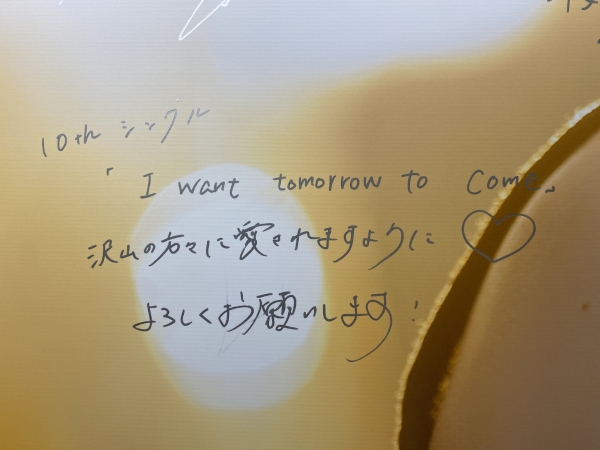 10th シングル
「I want tomorrow to Come」
沢山の方々に愛されますように♡
よろしくお願いします!